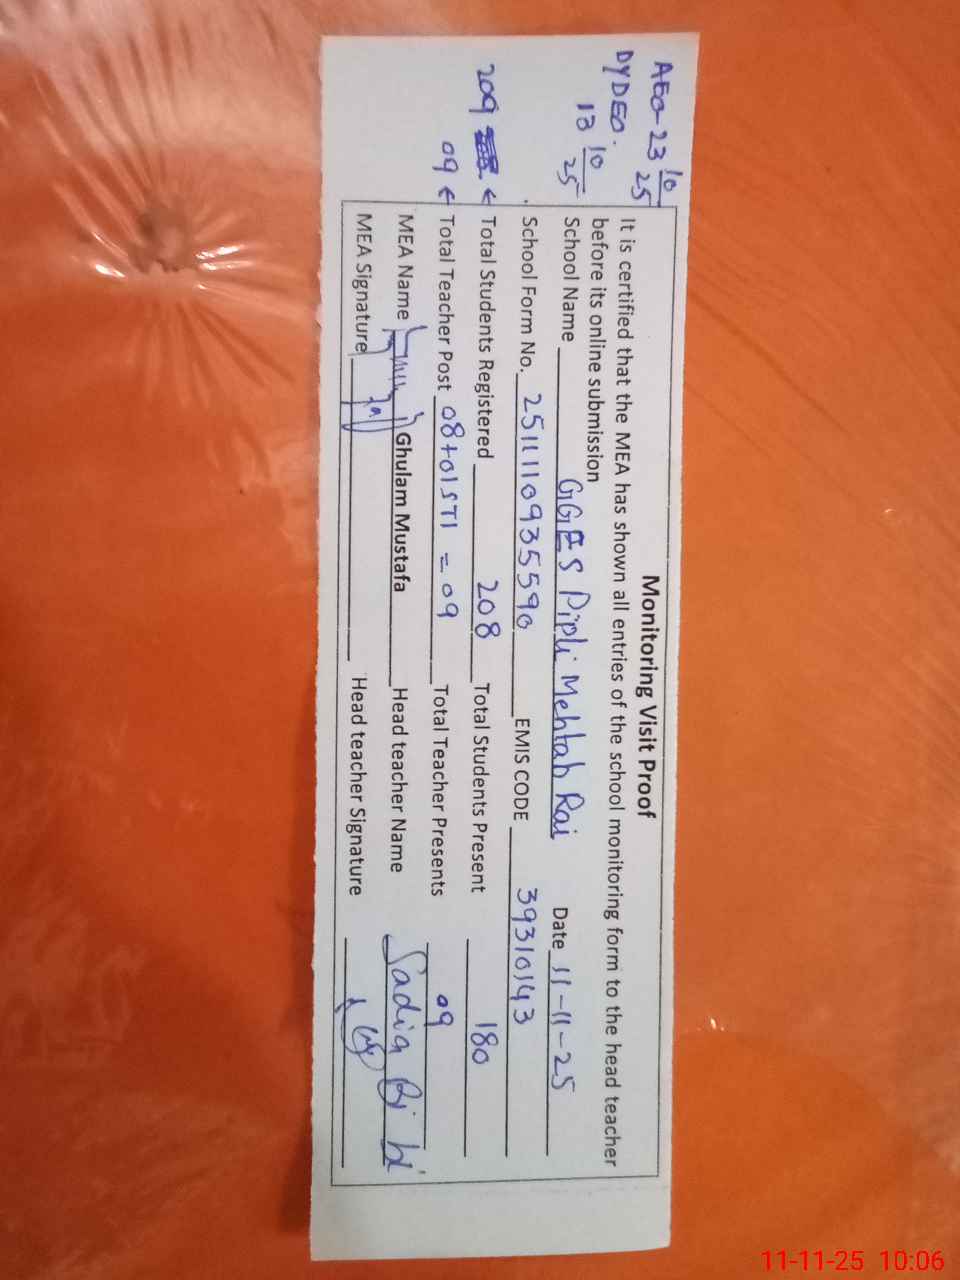 AEO- 23 10/25
DYDEO.
13 10/25
Monitoring Visit Proof
It is certified that the MEA has shown all entries of the school monitoring form to the head teacher
before its online submission
School Name GGES Pipli Mehtab Rai Date 11-11-25
School Form No. 2511110935590 EMIS CODE 39310143
209 ← Total Students Registered 208 Total Students Present 180
09 ← Total Teacher Post 08+01STI = 09 Total Teacher Presents 09
MEA Name Ghulam Mustafa Head teacher Name Sadia Bi bi
MEA Signature Head teacher Signature
11-11-25 10:06